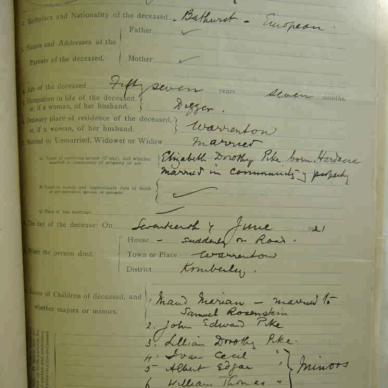 2. Birthplace and Nationality of the deceased Bathurst - European
3. Names and Addresses of the Parents of the deceased.
Father
Mother
4. Age of the deceased Fifty seven years seven months.
Occupation in life of the deceased, or, if a woman, of her husband. Digger.
Ordinary place of residence of the deceased, or, if a woman, of her husband. Warrenton
Married or Unmarried, Widower or Widow Married
Elizabeth Dorothy Pike born
married in community of property
day of the deceased: On Seventeenth of June 21
House - suddenly on Road.
Where the person died. Town or Place Warrenton
District Kimberley.
Names of Children of deceased, and whether majors or minors.
1. Maud Merian - married to
Samuel
2. John Edward Pike
3. Lillian Dorothy Pike
4. Ivan Cecil "
5. Albert Edgar "
6. William Thomas "
Minors